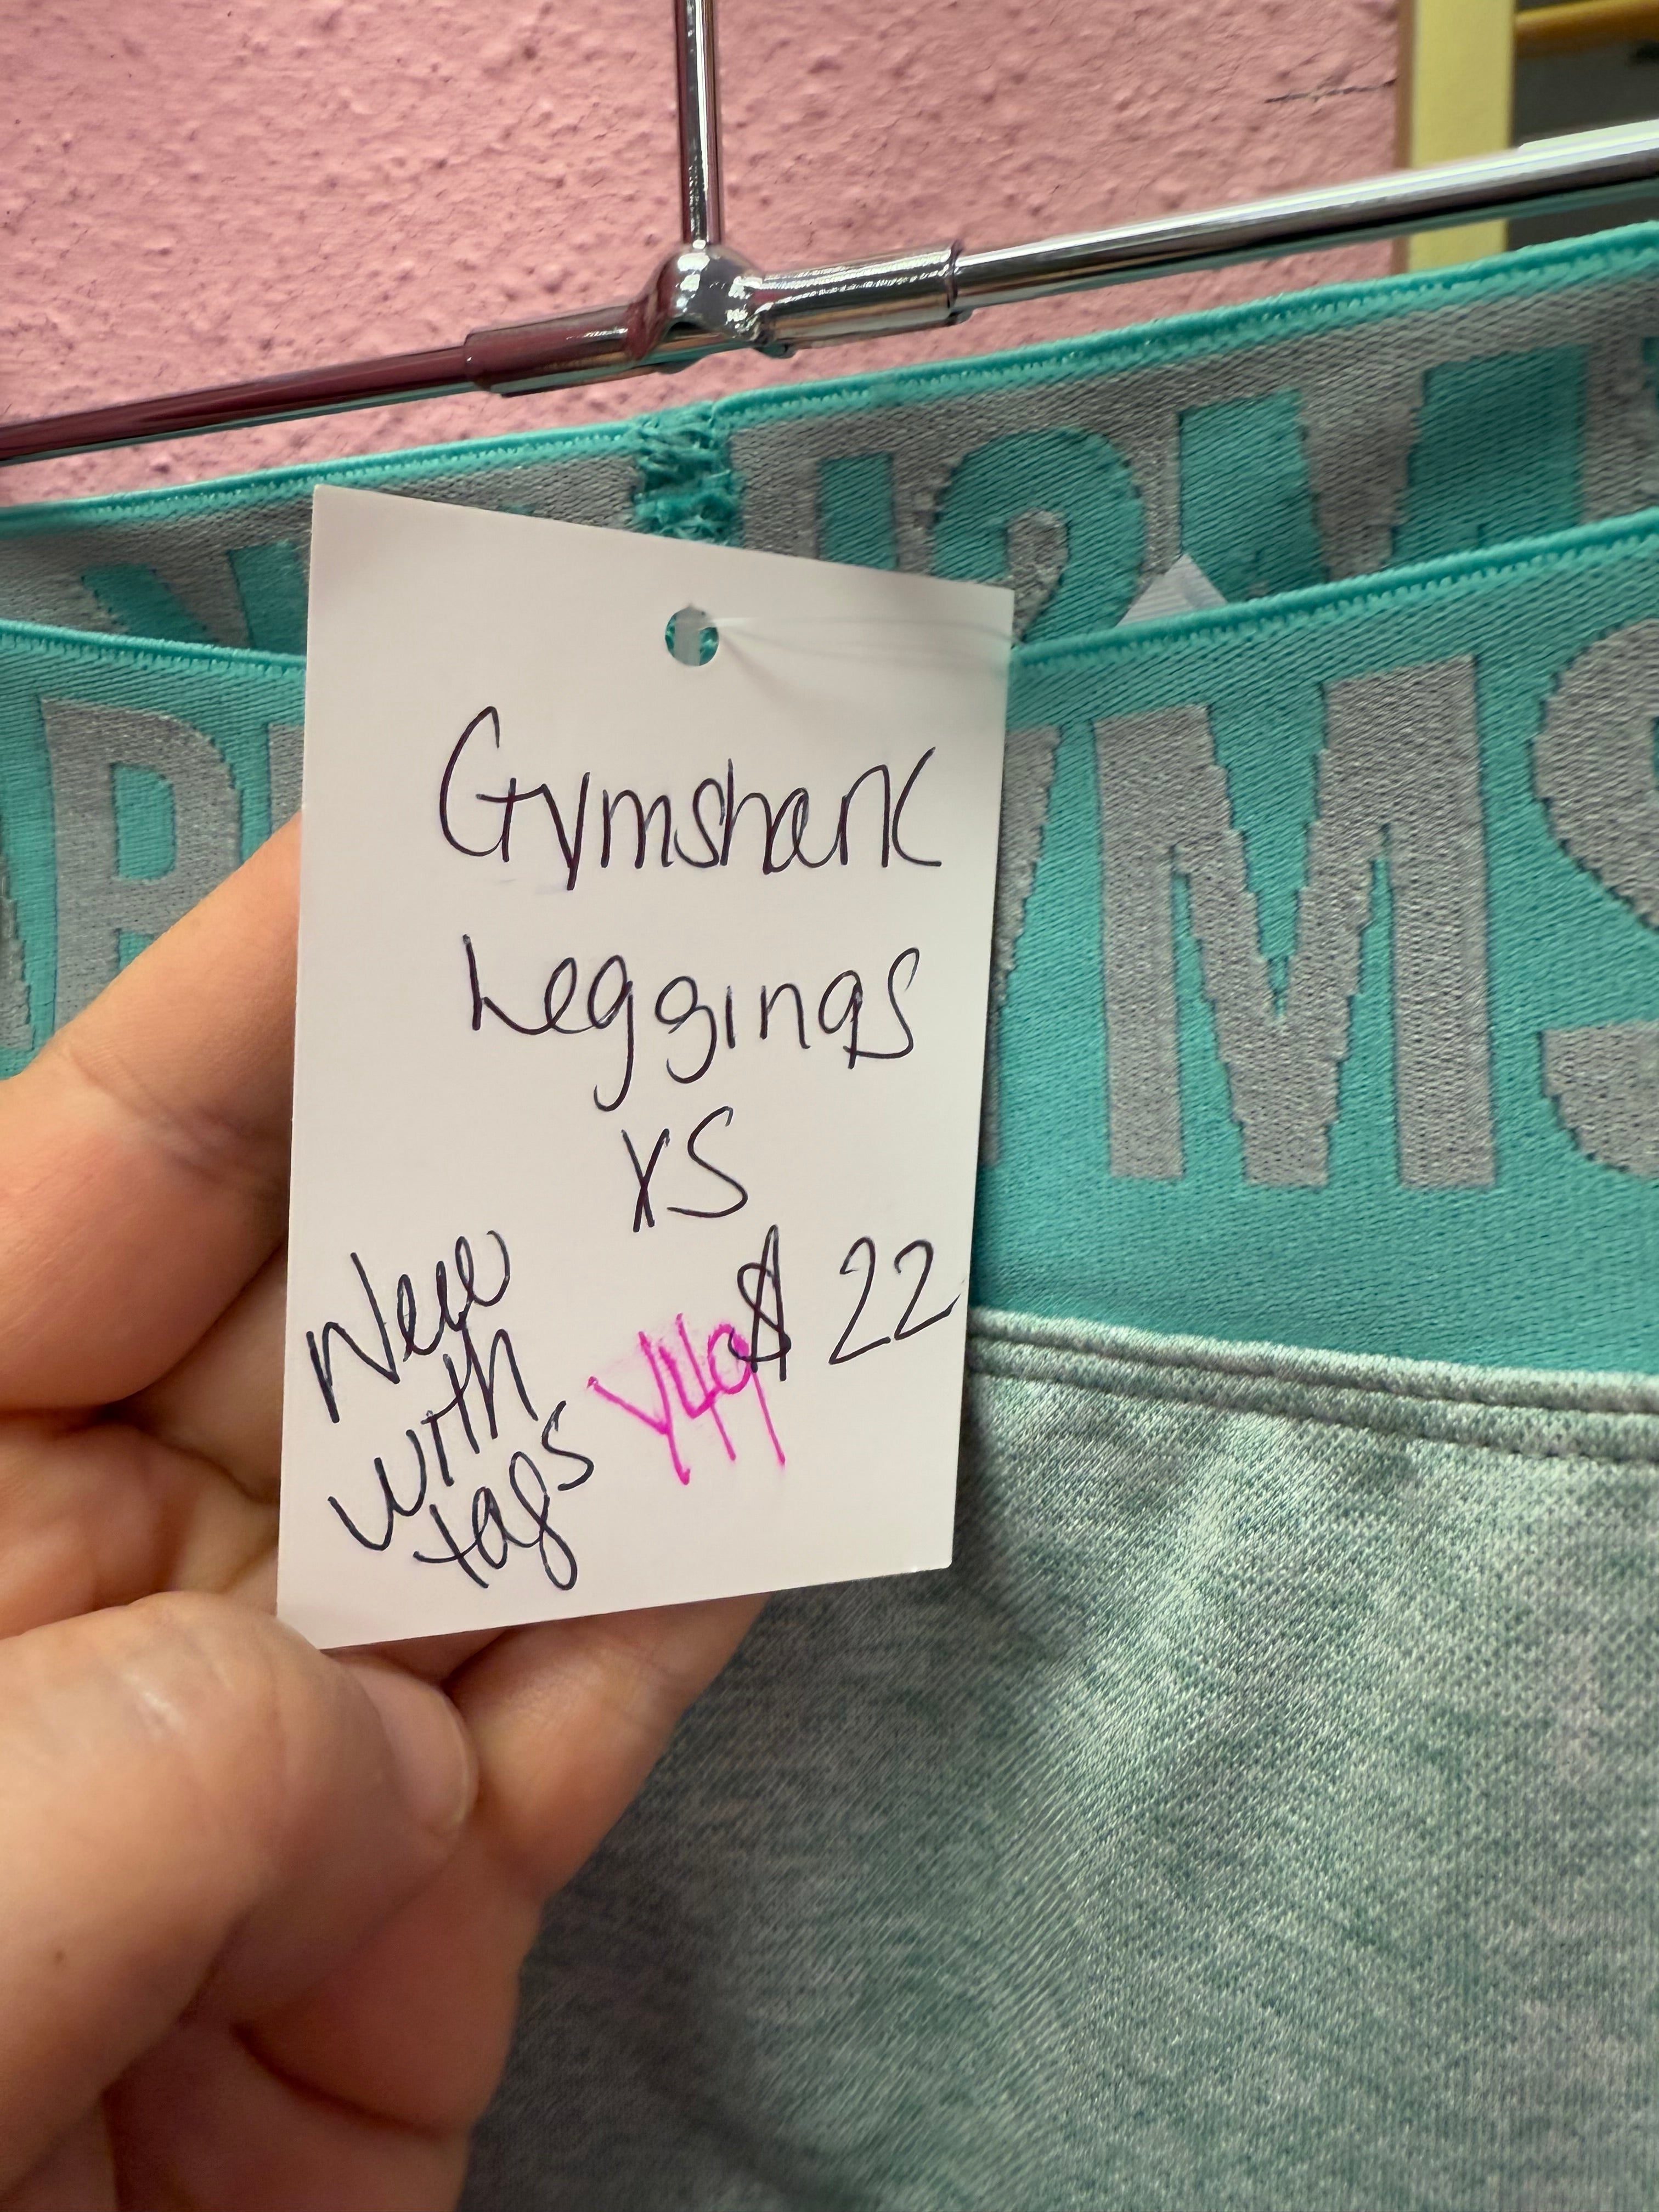 Gymshark
Leggings
XS
$22
New
with
tags
Y49
YMS